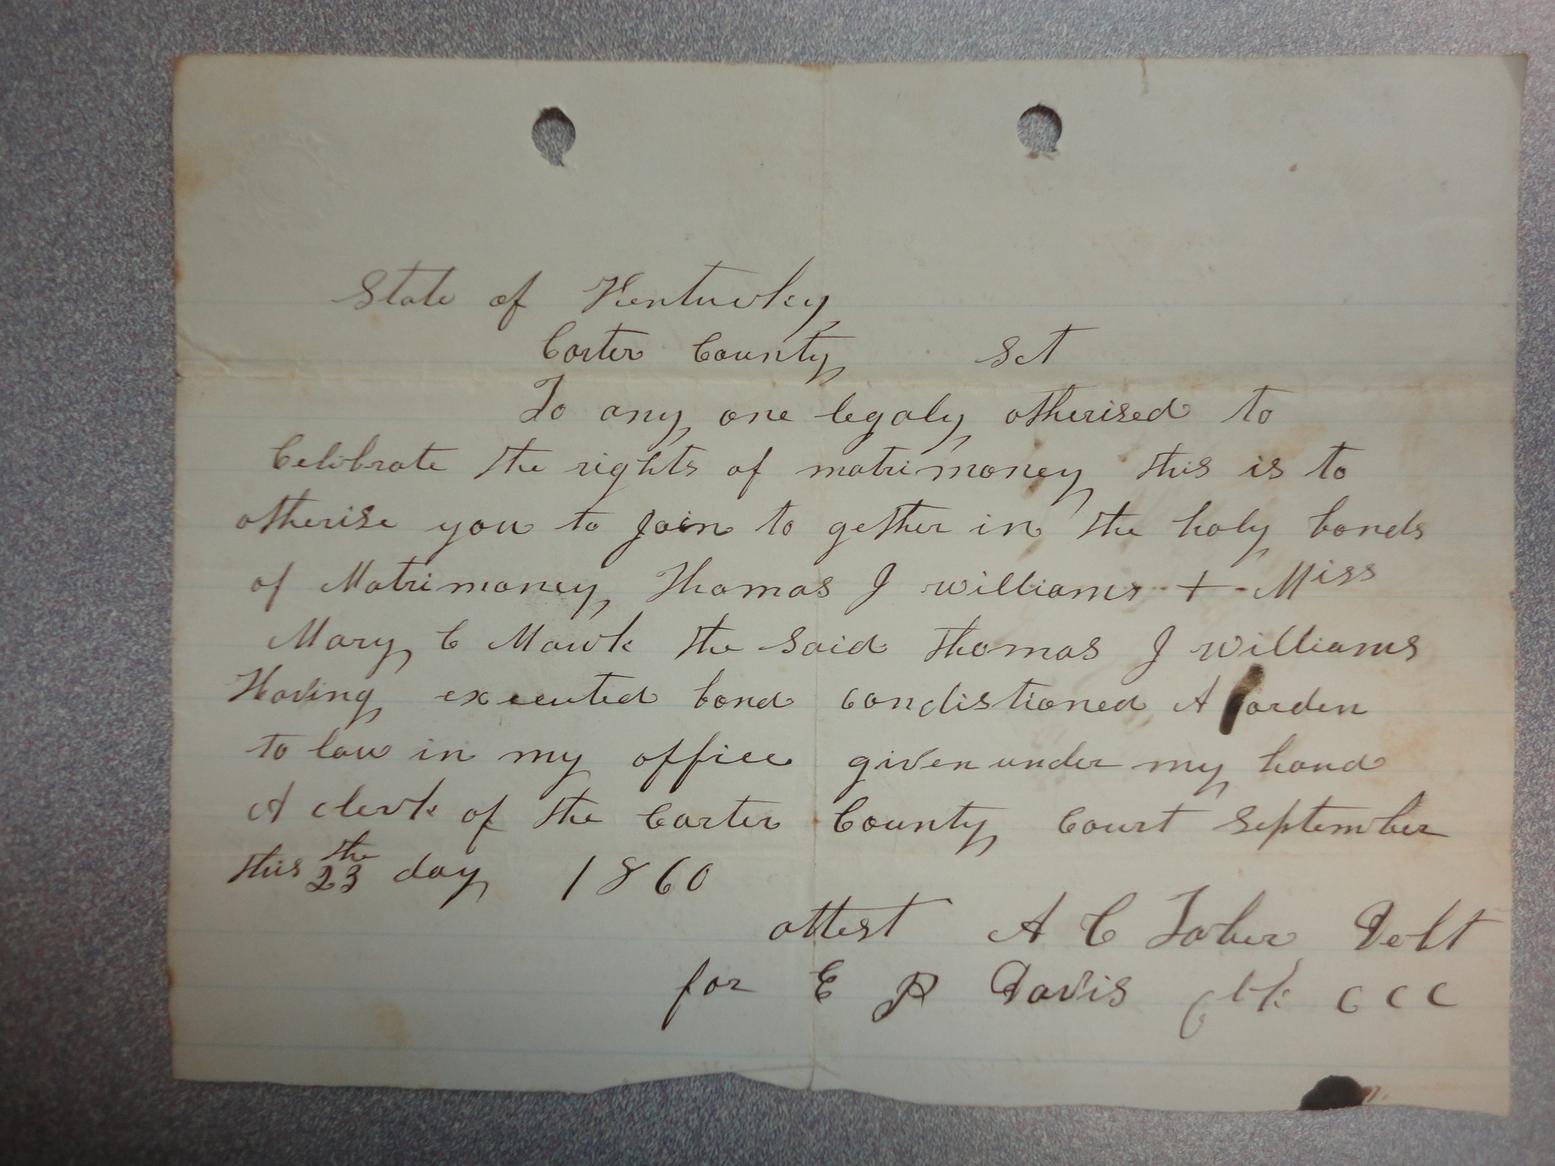 State of Kentucky
Carter County Sct
To any one legaly otherised to
Celibrate the rights of matrimoney this is to
otherise you to join to gether in the holy bonds
of Matrimoney Thomas J williams + Miss
Mary C Mauk the said Thomas J williams
Having executed bond condistioned A cordin
to law in my office given under my hand
A clerk of the Carter County Court September
this 23 the day 1860
attest A C Tober Debt
for E R Davis Clk CCC